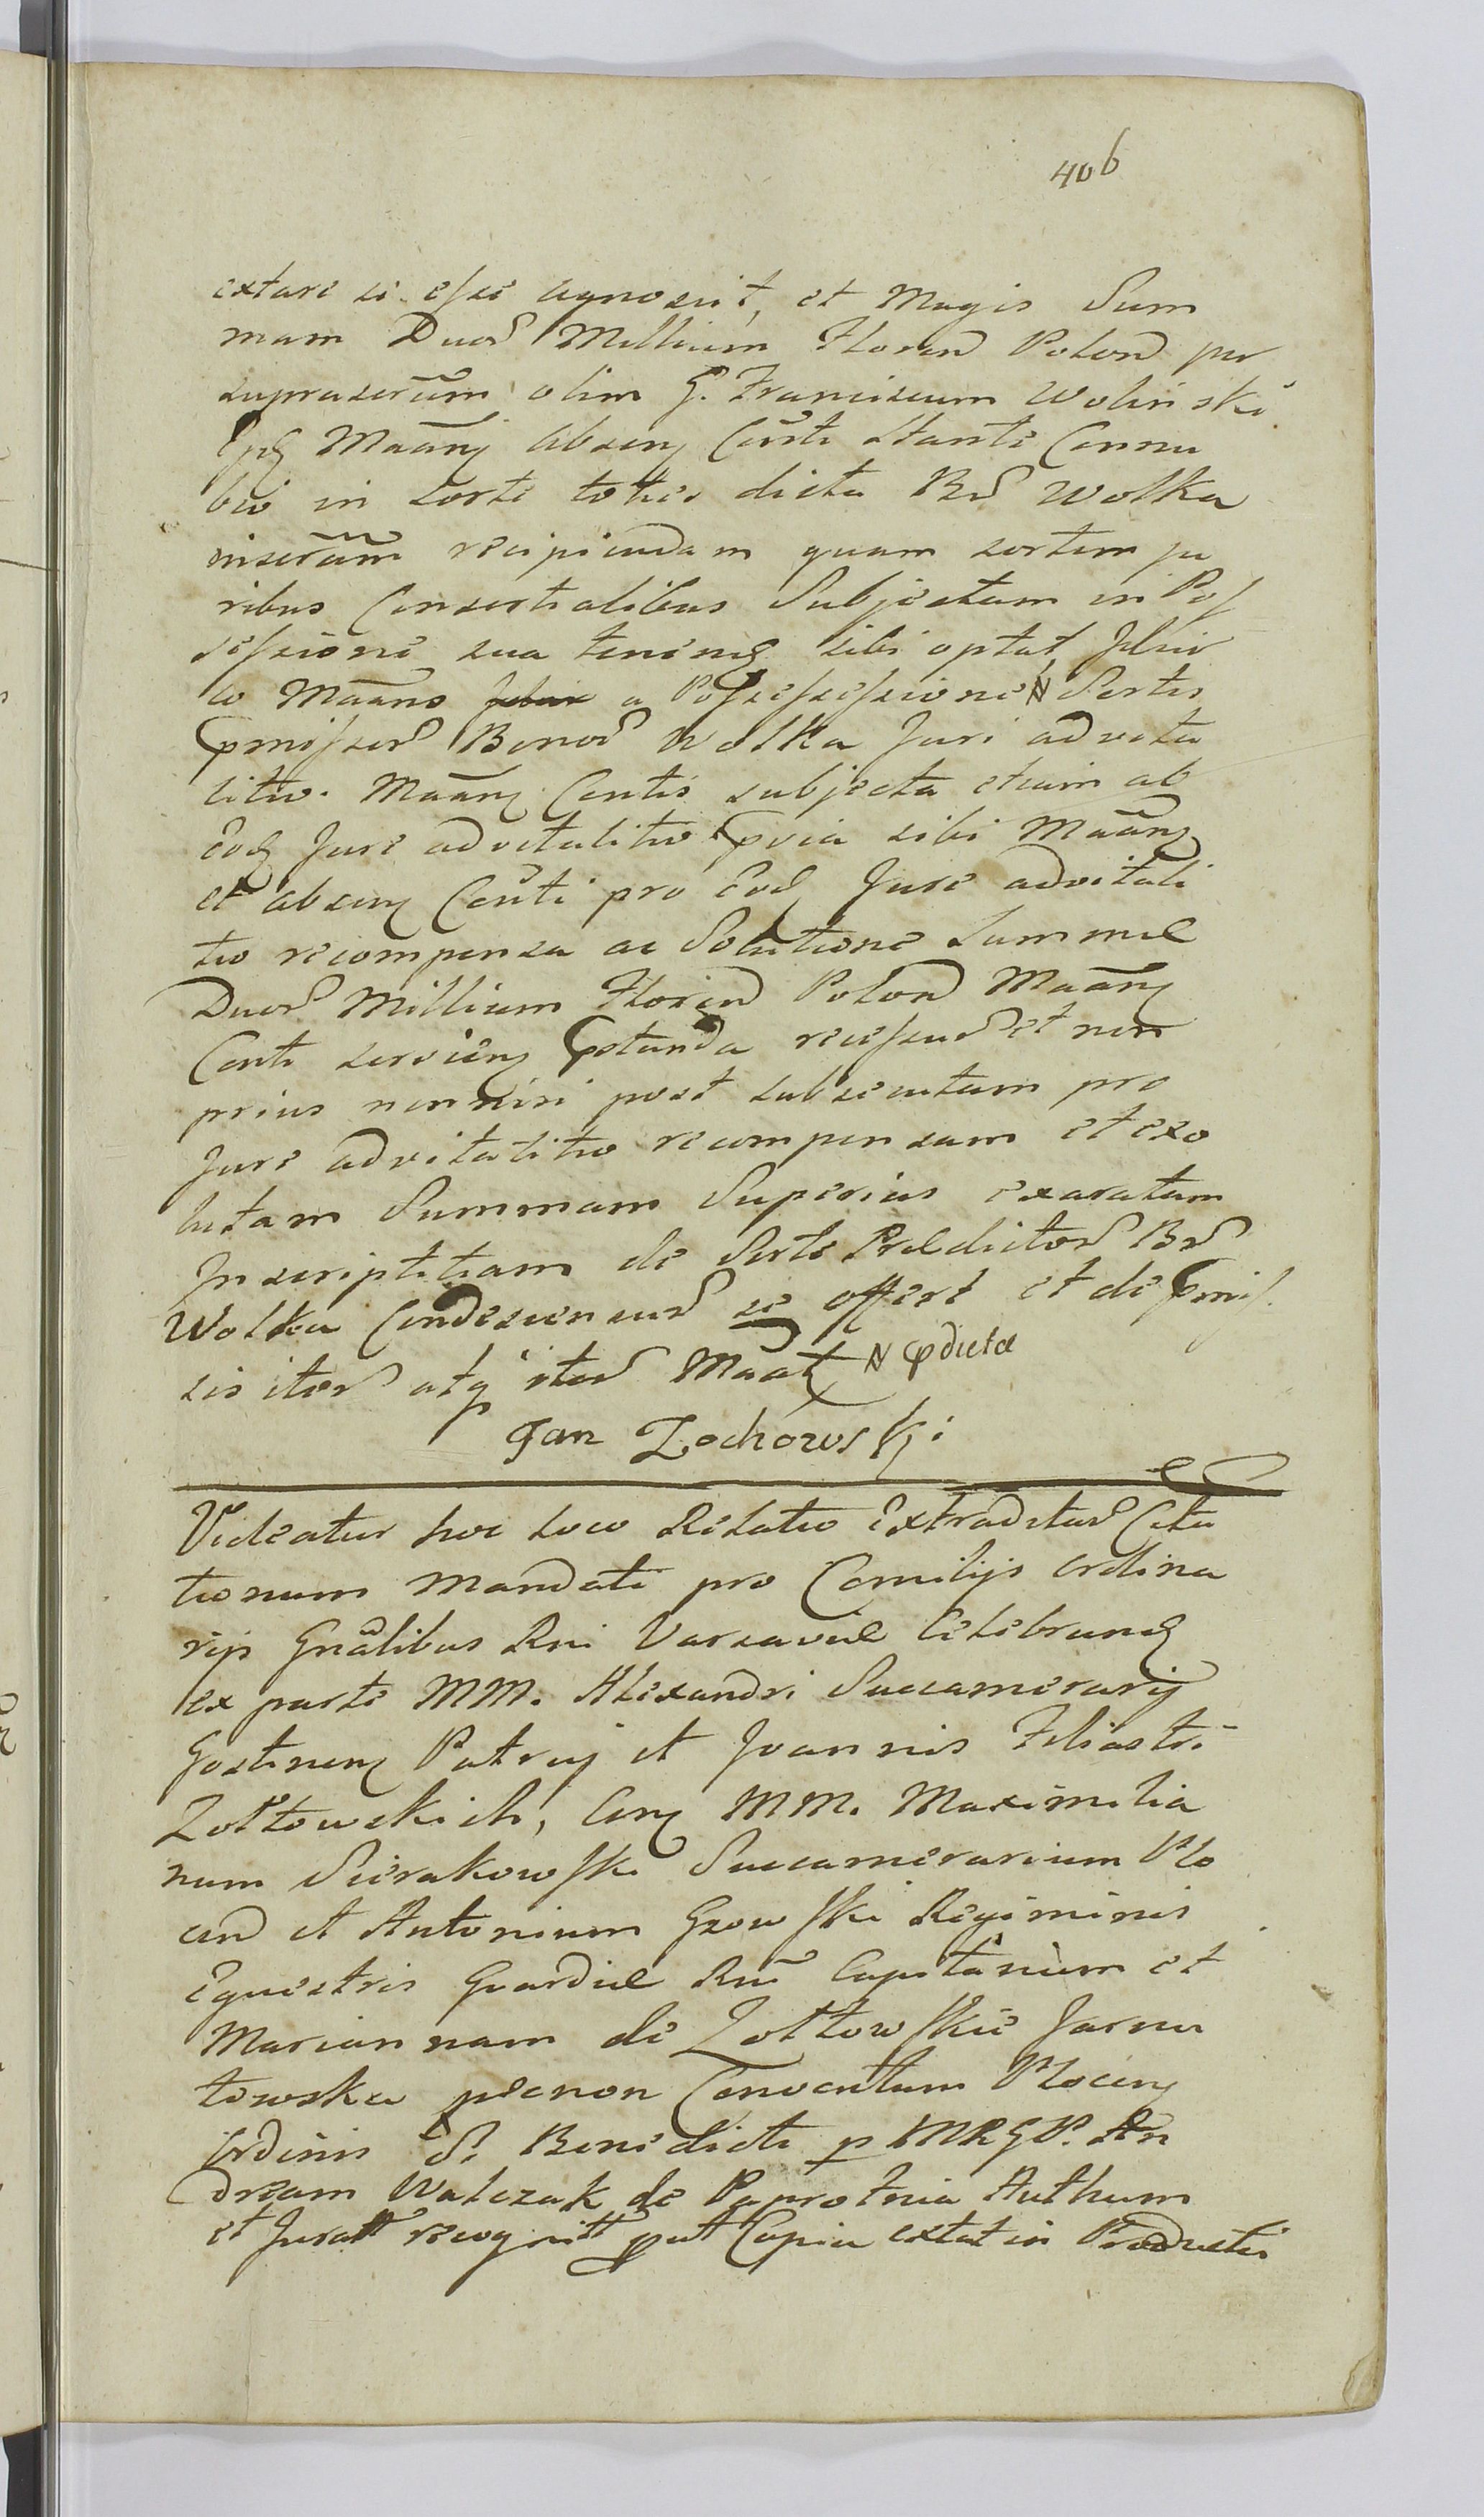 406
extare si esse agnoscit, et Magis Sum
mam Duor Millium Floren Polon per
suprascrm olim G. Franciscum Wolinski
Maanj absenj Conti stante Connu
bio in sorte toties dicta Br Wolka
inscram recipiendam quam sortem ju
ribus Consortialibus Subjectam in Pos
sessione sua tenend sibi optat,
co Maans a Possessessione N Sortis
pmissor Bonor Wolka Juri advita
litio. Maanj Contis subjecta etiam ab
Eod Jure advitalitio pvia sibi Maanj
et absenj Conti pro Eod Jure advitali
tio recompensa ac Solutione Summæ
Duor Millium Floren Polon Maanj
Conti servienj pstanda recessur et non
prius nonnisi post subsecutam pro
Jure advitalitio recompensam et exo
lutam Summam Superius exaratam
Inscriptitiam de Sorte Prædictor Br
Wolka Condescensur se offert et de pmis
sis iter atq iter Maat N pdictæ
Jan Zochowski
Videatur hoc loco Relatio Extraditar Cita
tionum Mandati pro Comitijs Ordina
rijs Gnalibus Rni Varsaviæ Celebrand
ex parte MM. Alexandri Succamerarij
Gostinenj Patruj et Joannis Filiastri
Zołtowskich, Conj MM. Maximilia
num Sierakowski Succamerarium Plo
cen et Antonium Gzowski Regiminis
Equestris Guardiæ Rni Capitanium et
Mariannam de Zołtowskie Jarnu
towska necnon Conventum Plocenj
Ordinis S. Benedicti p MRGP. An
dream Walczak de Paprotnia Authum
et Juratt recognitt put Copia extat in Productis